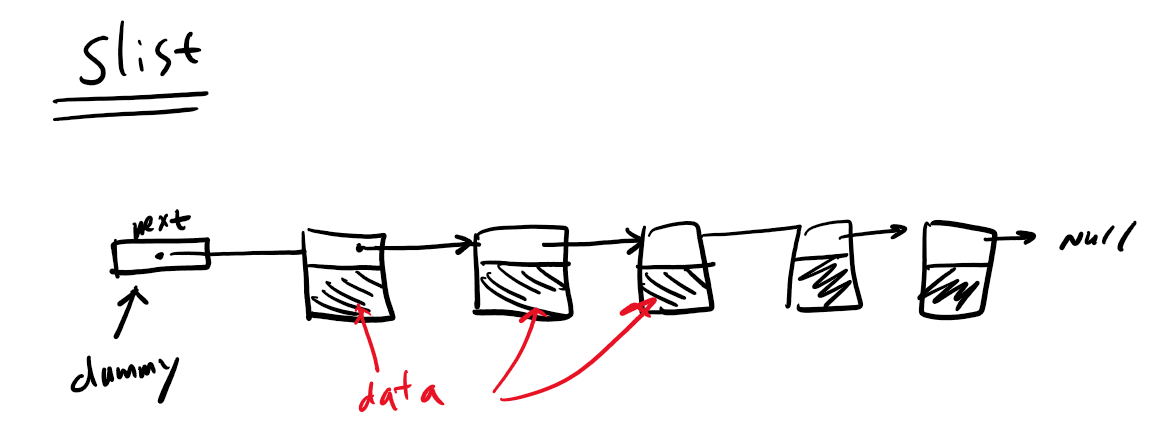 Slist
next
null
dummy
data